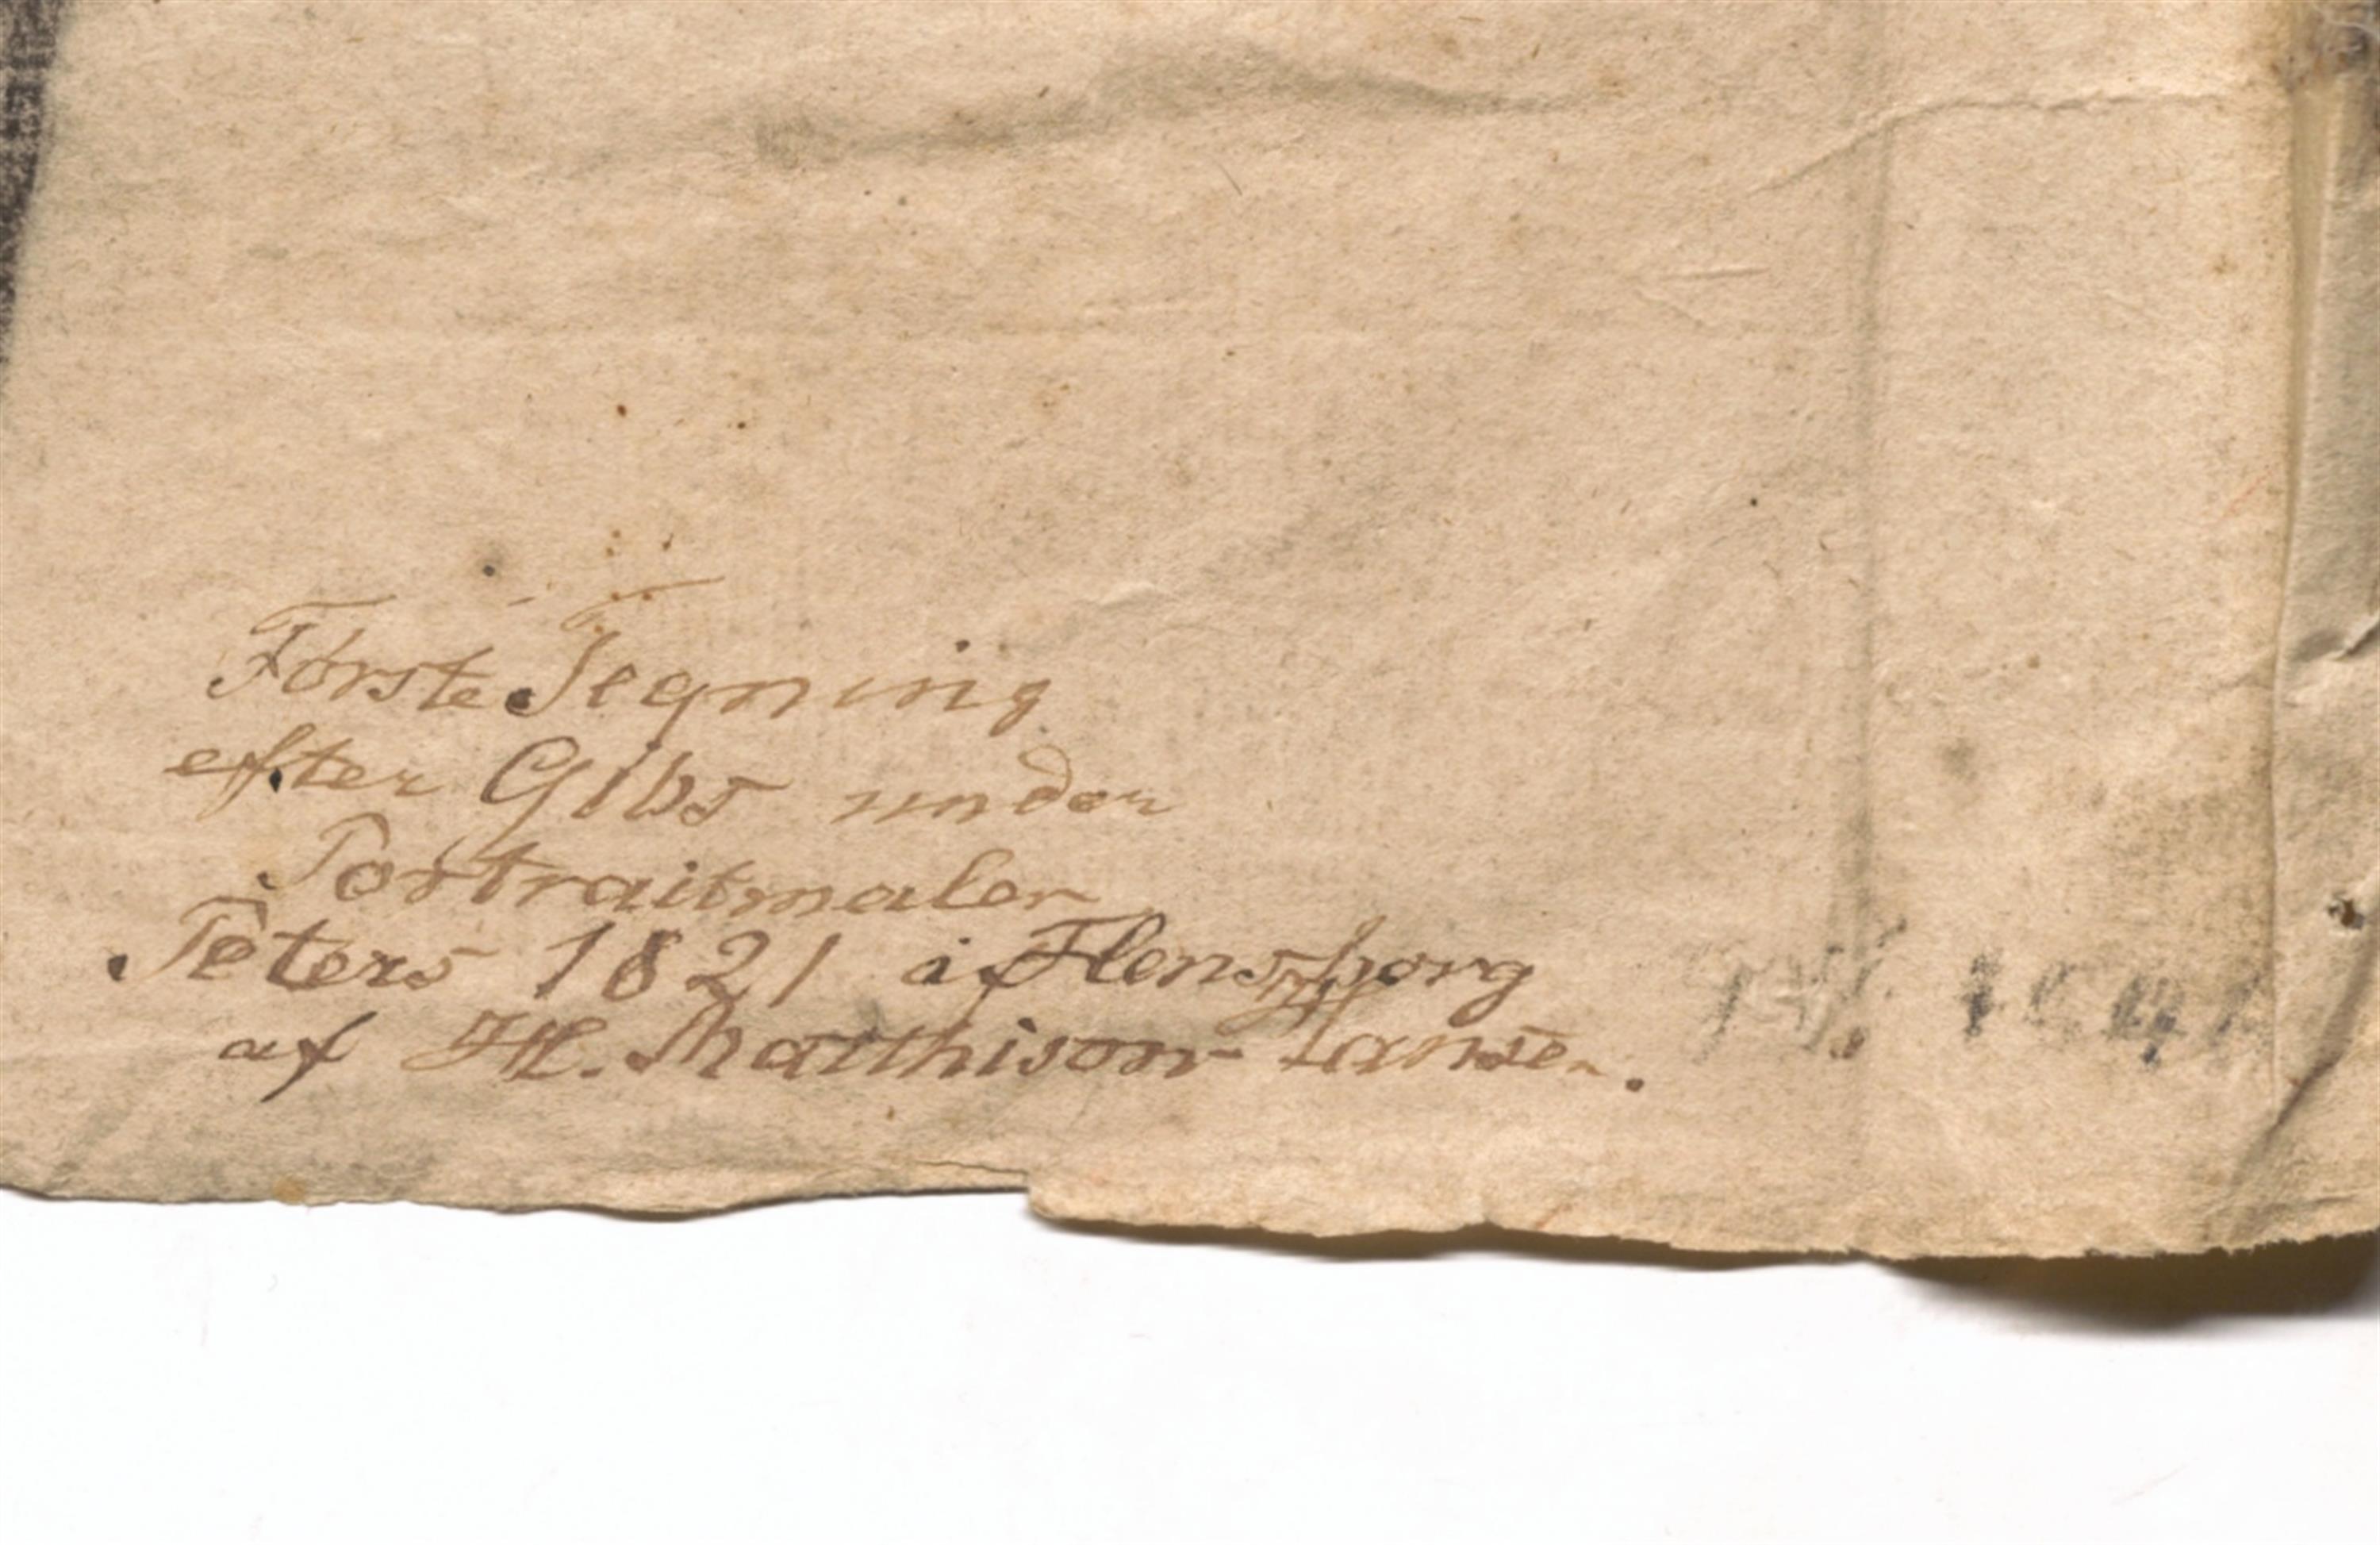 Förste Tegning
efter Gibs under
Portraitmaler
Peters 1821 i Flensborg
af H. Matthison-Hansen.